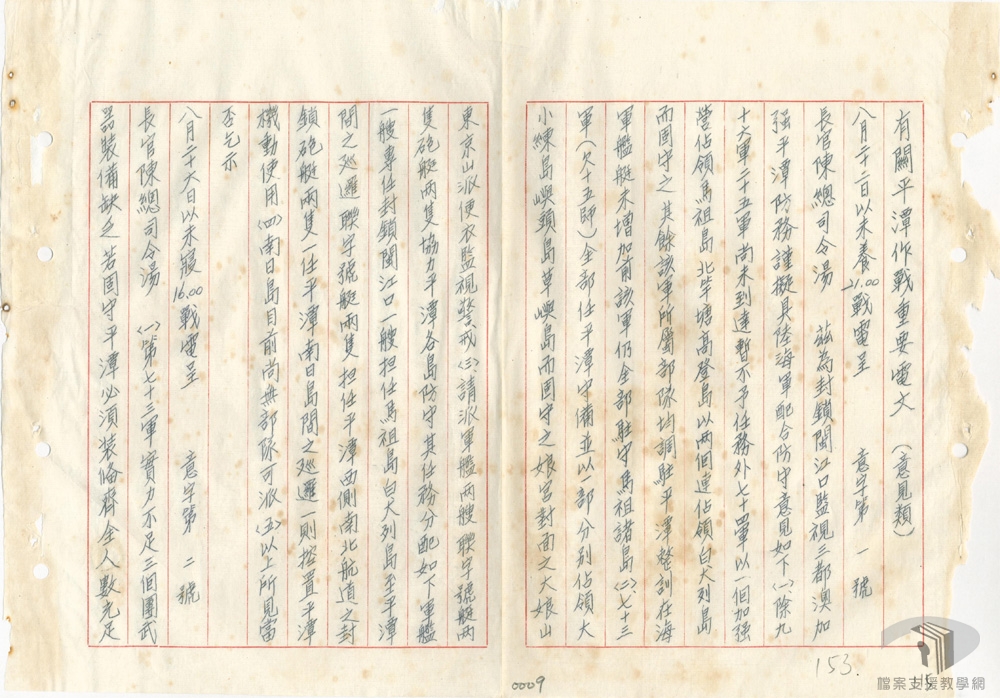 有關平潭作戰重要電文（意見類）
八月二十二日以未養21.00戰電呈　意字第一號
長官陳總司令湯　茲為封鎖閩江口監視三都澳加
强平潭防務謹擬具陸海軍配合防守意見如下㈠除九
十六軍二十五軍尚未到達暫不予任務外七十四軍以一個加强
營佔領馬祖島北竿塘高登島以兩個連佔領白犬列島
而固守之其餘該軍所屬部隊均調駐平潭整訓在海
軍艦艇未增加前該軍仍全部駐守馬祖諸島㈡七十三
軍（欠十五師）全部任平潭守備並以一部分別佔領大
小練島嶼頭島草嶼島而固守之娘宮對面之大娘山
東京山派便衣監視警戒㈢請派軍艦兩艘聯字號艇兩
隻砲艇兩隻協力平潭各島防守其任務分配如下軍艦
一艘專任封鎖閩江口一艘担任馬祖島白犬列島至平潭
間之廵邏聯字號艇兩隻担任平潭西側南北航道之封
鎖砲艇兩隻一任平潭南日島間之廵邏一則控置平潭
機動使用㈣南日島目前尚無部隊可派㈤以上所見當
否乞示
八月二十六日以未寢16.00戰電呈　意字第二號
長官陳總司令湯　㈠第七十三軍實力不足三個團武
器裝備缺乏若固守平潭必須裝備齊全人數充足
0009
153.
15
檔案支援教學網